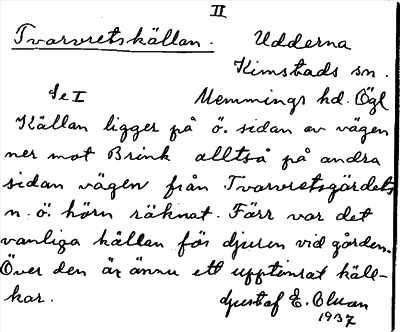 II
Tvarvretskällan. Udderna
Kimstads sn.
Se I Memmings hd. Ögl
Källan ligger på ö. sidan av vägen
ner mot Brink alltså på andra
sidan vägen från Tvarvretsgärdets
n. ö. hörn räknat. Förr var det
vanliga källan för djuren vid gården.
Över den är ännu ett upptimrat käll-
kar. Gustaf E. Olsson
1937